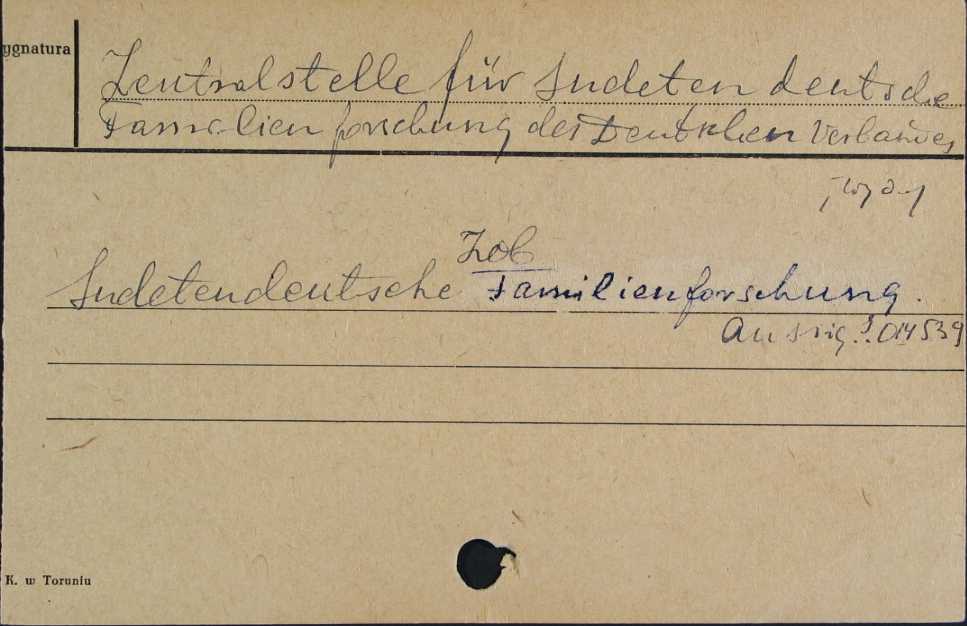 ygnatura
Zentralstelle für Sudeten deutsche
Familien forschung des Deutschen Verbandes
Zob
Sudetendeutsche Familienforschung.
Aussig. 014539
K. w Toruniu